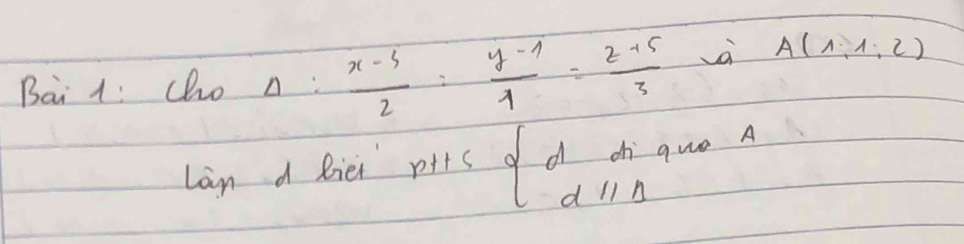 Bài 1: Cho Δ: x-3/2 = y-1/1 = z+5/3 và A(1;1;2)
Lập d biết ptts { d đi qua A
d // Δ